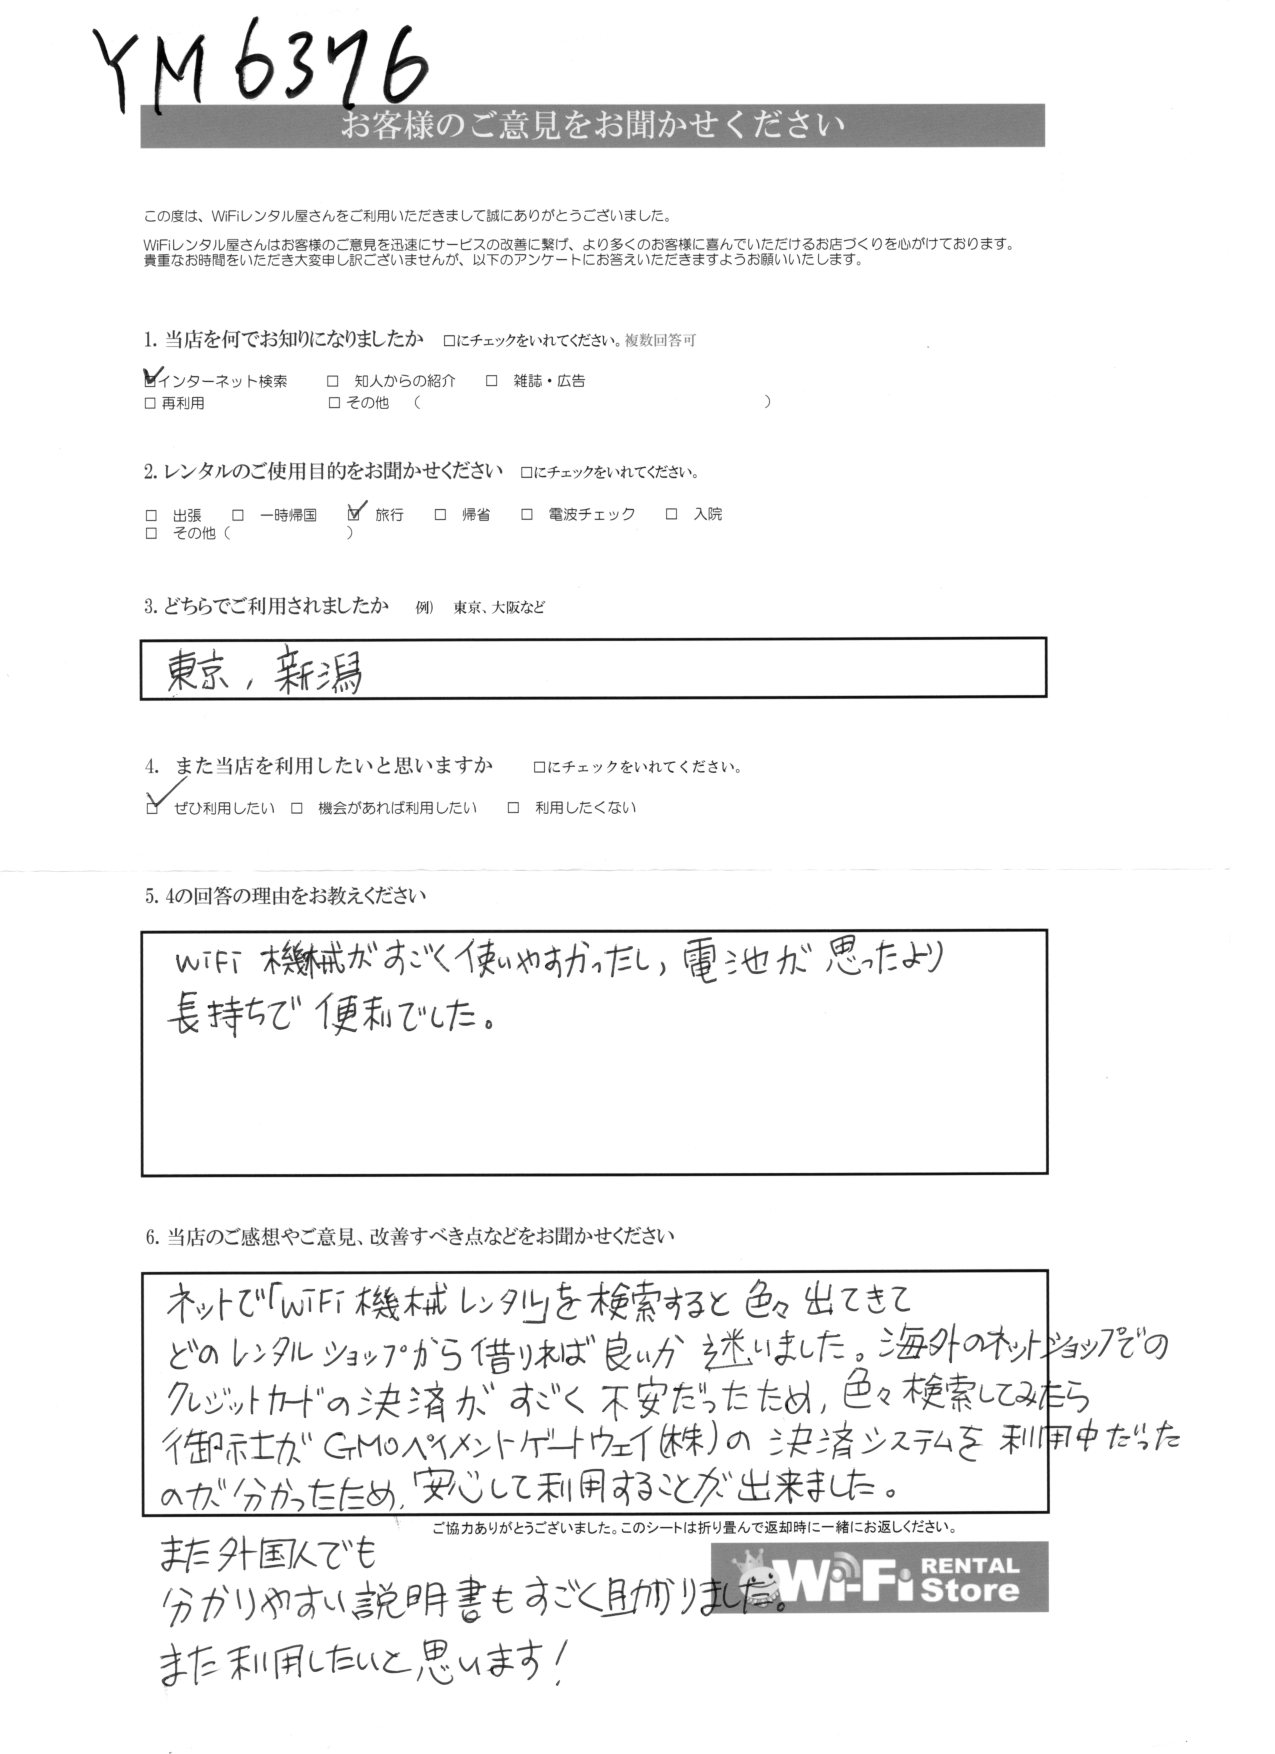 YM6376
お客様のご意見をお聞かせください
この度は、WiFiレンタル屋さんをご利用いただきまして誠にありがとうございました。
WiFiレンタル屋さんはお客様のご意見を迅速にサービスの改善に繋げ、より多くのお客様に喜んでいただけるお店づくりを心がけております。
貴重なお時間をいただき大変申し訳ございませんが、以下のアンケートにお答えいただきますようお願いいたします。
1. 当店を何でお知りになりましたか □にチェックをいれてください。複数回答可
☑インターネット検索 □ 知人からの紹介 □ 雑誌・広告
□ 再利用 □ その他 ( )
2. レンタルのご使用目的をお聞かせください □にチェックをいれてください。
□ 出張 □ 一時帰国 ☑ 旅行 □ 帰省 □ 電波チェック □ 入院
□ その他 ( )
3. どちらでご利用されましたか 例) 東京、大阪など
東京, 新潟
4. また当店を利用したいと思いますか □にチェックをいれてください。
☑ ぜひ利用したい □ 機会があれば利用したい □ 利用したくない
5. 4の回答の理由をお教えください
WiFi 機械がすごく使いやすかったし, 電池が思ったより
長持ちで便利でした。
6. 当店のご感想やご意見、改善すべき点などをお聞かせください
ネットで「WiFi機械レンタル」を検索すると色々出てきて
どのレンタルショップから借りれば良いか迷いました。海外のネットショップでの
クレジットカードの決済がすごく不安だったため, 色々検索してみたら
御社がGMOペイメントゲートウェイ(株)の決済システムを利用中だった
のが分かったため, 安心して利用することが出来ました。
ご協力ありがとうございました。このシートは折り畳んで返却時に一緒にお返しください。
また外国人でも
分かりやすい説明書もすごく助かりました。
Wi-Fi RENTAL Store
また利用したいと思います!